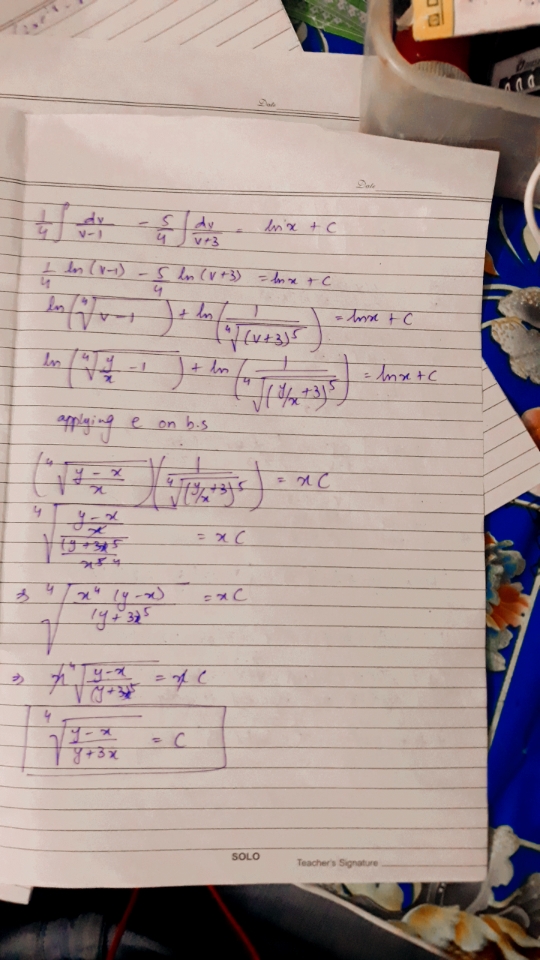 Date
Date
1/4 ∫ dv/(v-1) - 5/4 ∫ dv/(v+3) = lnx + C
1/4 ln(v-1) - 5/4 ln(v+3) = lnx + C
ln(⁴√(v-1)) + ln(1/⁴√((v+3)⁵)) = lnx + C
ln(⁴√(y/x - 1)) + ln(1/⁴√((y/x+3)⁵)) = lnx + C
applying e on b.s
(⁴√((y-x)/x))(1/⁴√((y/x+3)⁵)) = xC
⁴√(((y-x)/x)/((y+3x)⁵/x⁵ ⁴)) = xC
⇒ ⁴√(x⁴(y-x)/(y+3x)⁵) = xC
⇒ x ⁴√((y-x)/(y+3x)⁵) = xC
⁴√((y-x)/(y+3x)) = C
SOLO
Teacher's Signature